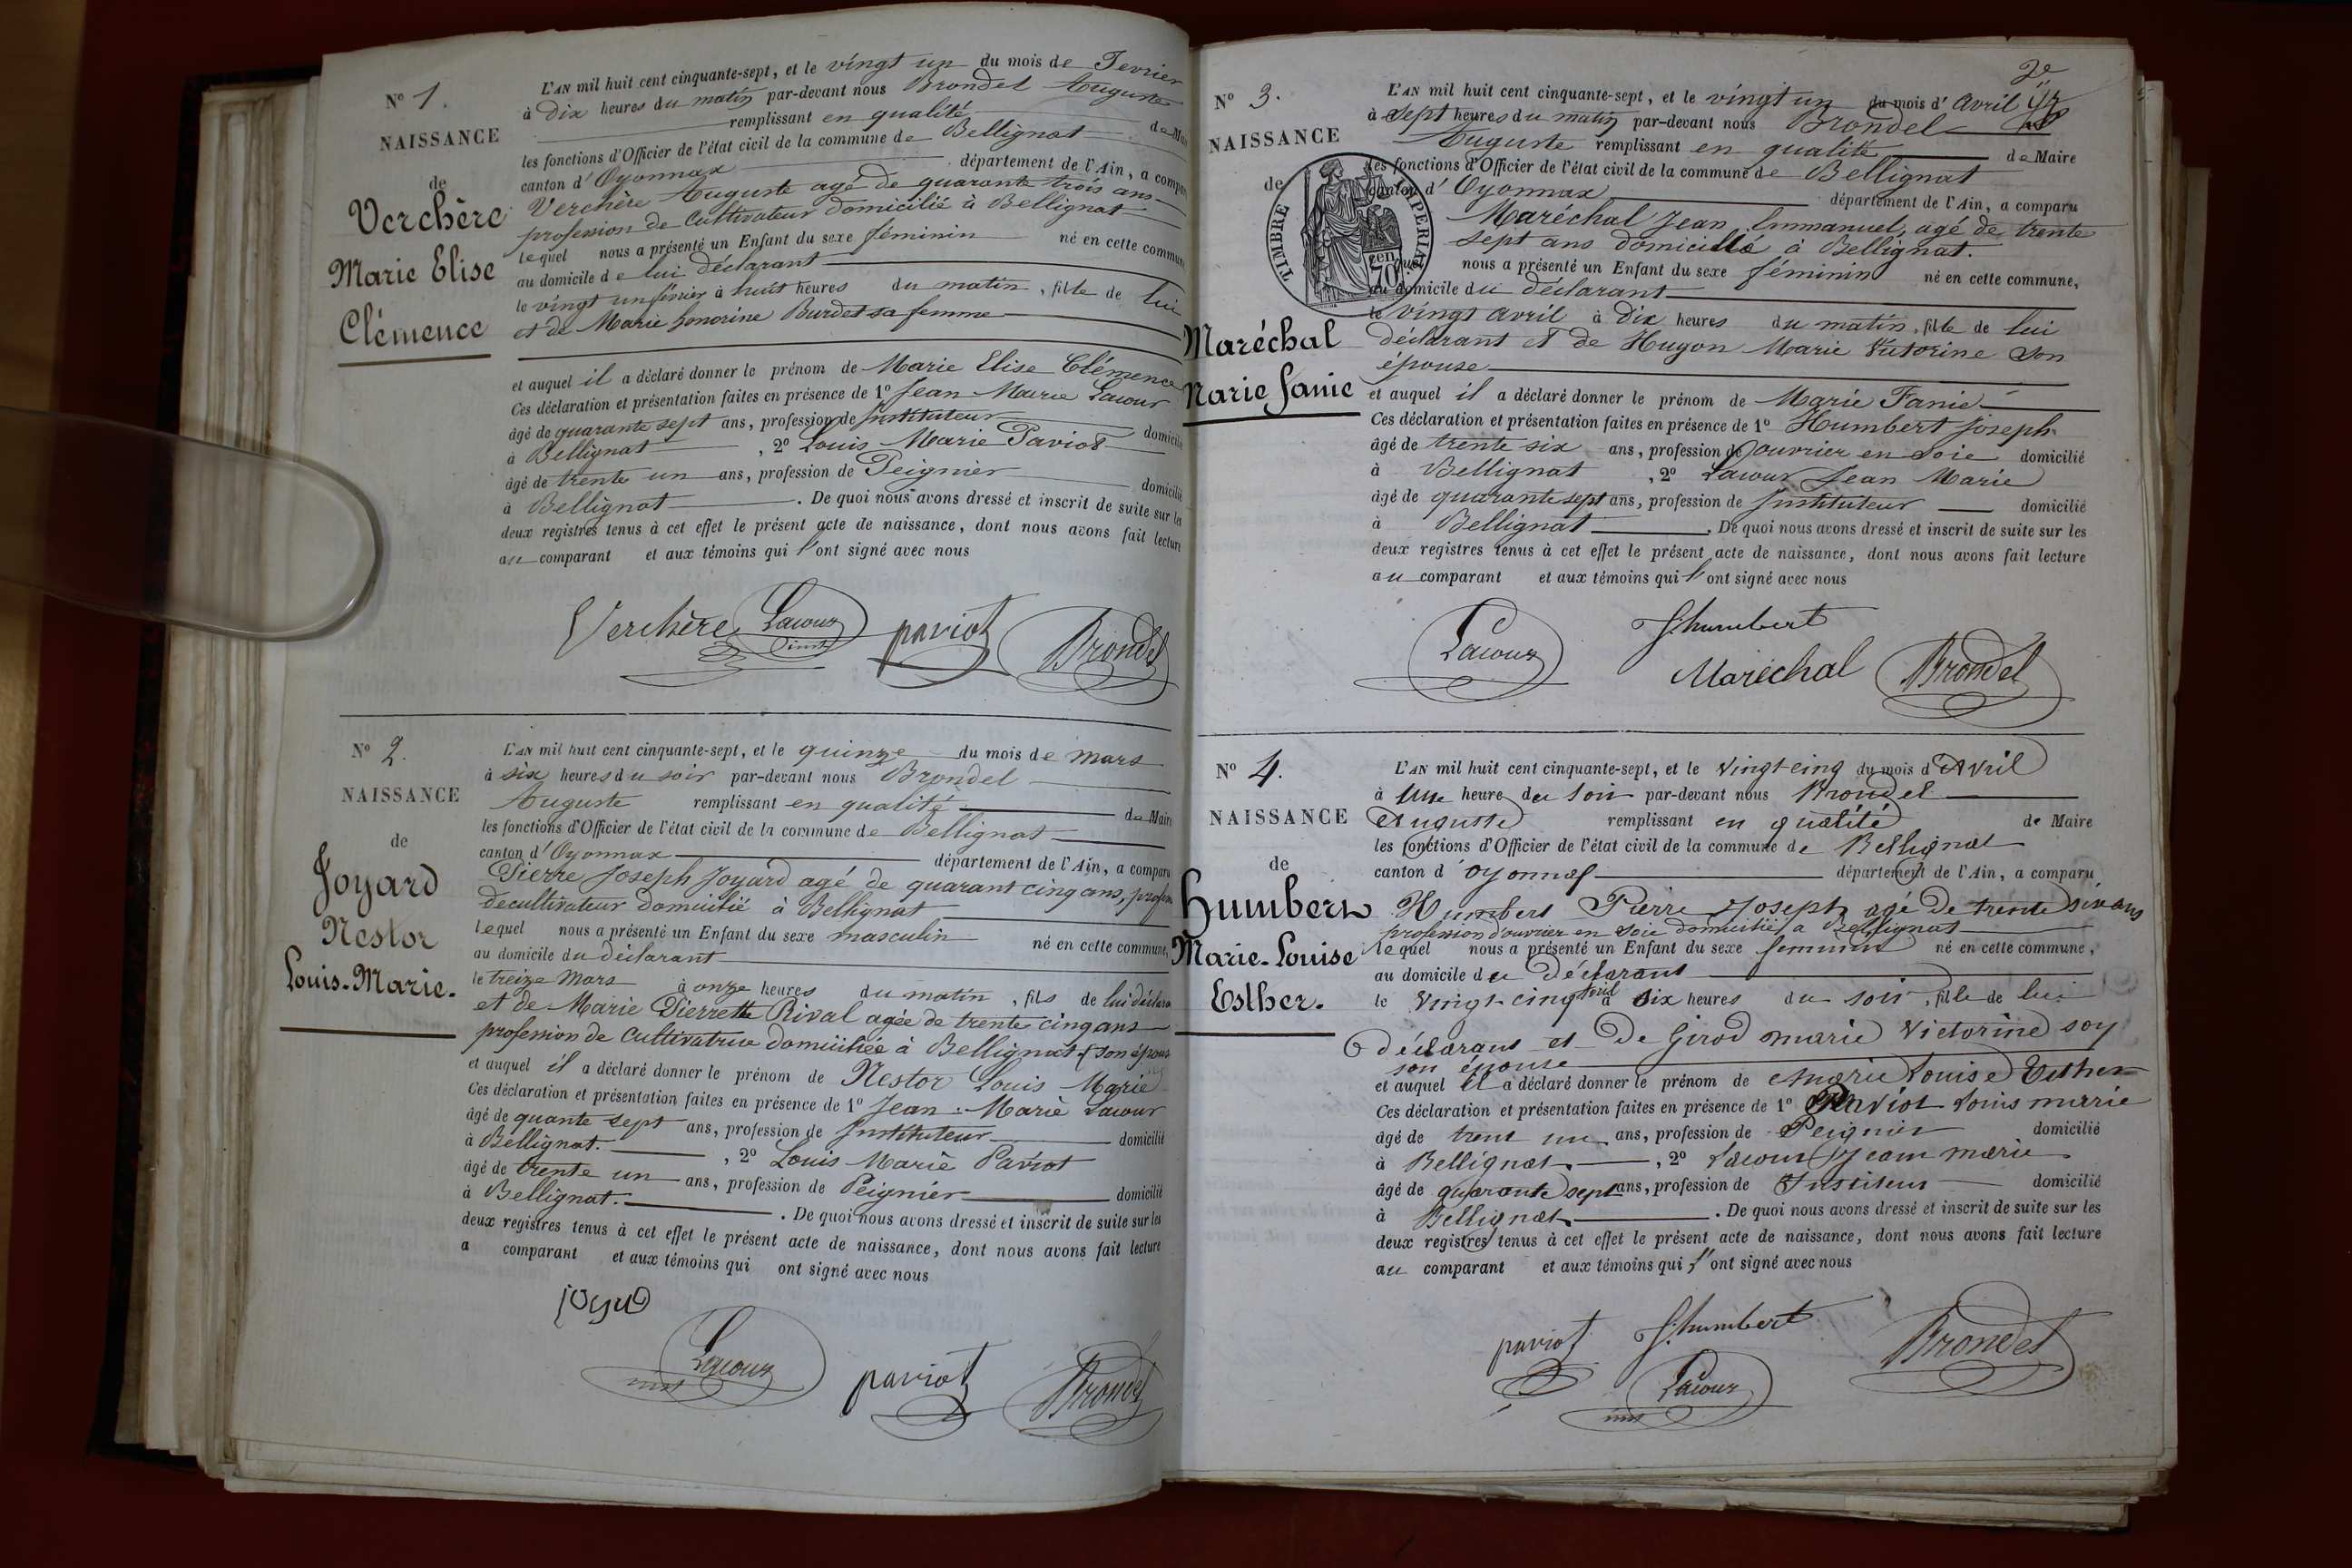 N° 1.
NAISSANCE
de
Verchère
Marie Elise
Clémence
L'AN mil huit cent cinquante-sept, et le vingt un du mois de Fevrier
à Dix heures du matin par-devant nous Brondel Auguste
remplissant en qualité de Mai
les fonctions d'Officier de l'état civil de la commune de Bellignat
canton d'Oyonnax département de l'Ain, a compar
Verchère Auguste agé de quarante trois ans
profession de Cultivateur domicilié à Bellignat
lequel nous a présenté un Enfant du sexe féminin né en cette commune
au domicile de lui déclarant
le vingt un février à huit heures du matin, fille de lui
et de Marie honorine Burdet sa femme
et auquel il a déclaré donner le prénom de Marie Elise Clémence
Ces déclaration et présentation faites en présence de 1° Jean Marie Lacour
âgé de quarante sept ans, profession de Instituteur domicilié
à Bellignat, 2° Louis Marie Paviot
âgé de trente un ans, profession de Peignier domicilié
à Bellignat. De quoi nous avons dressé et inscrit de suite sur les
deux registres tenus à cet effet le présent acte de naissance, dont nous avons fait lecture
au comparant et aux témoins qui l'ont signé avec nous
Verchère Lacour paviot Brondel
inst
N° 2.
NAISSANCE
de
Joyard
Nestor
Louis-Marie.
L'AN mil huit cent cinquante-sept, et le quinze du mois de mars
à six heures du soir par-devant nous Brondel
Auguste remplissant en qualité de Maire
les fonctions d'Officier de l'état civil de la commune de Bellignat
canton d'Oyonnax département de l'Ain, a comparu
Pierre Joseph Joyard agé de quarant cinq ans, profession
decultivateur domicilié à Bellignat
lequel nous a présenté un Enfant du sexe masculin né en cette commune,
au domicile du déclarant
le treize Mars à onze heures du matin, fils de lui déclara
et de Marie Pierrette Rival agée de trente cinq ans
profession de Cultivatrice domiciliée à Bellignat son épouse
et auquel il a déclaré donner le prénom de Nestor Louis Marie
Ces déclaration et présentation faites en présence de 1° Jean-Marie Lacour
âgé de quante sept ans, profession de Instituteur domicilié
à Bellignat., 2° Louis Marie Paviot
âgé de trente un ans, profession de Peignier domicilié
à Bellignat. De quoi nous avons dressé et inscrit de suite sur les
deux registres tenus à cet effet le présent acte de naissance, dont nous avons fait lecture
a comparant et aux témoins qui ont signé avec nous
Lacour paviot Brondel
inst
N° 3.
NAISSANCE
de
TIMBRE IMPERIAL
70 cen
Maréchal
Marie Fanie
2e
L'AN mil huit cent cinquante-sept, et le vingt un du mois d'avril
à sept heures du matin par-devant nous Brondel
Auguste remplissant en qualité de Maire
les fonctions d'Officier de l'état civil de la commune de Bellignat
canton d'Oyonnax département de l'Ain, a comparu
Maréchal Jean Emmanuel, agé de trente
sept ans domicilié à Bellignat.
quel nous a présenté un Enfant du sexe féminin né en cette commune,
au domicile du déclarant
le vingt avril à dix heures du matin, fille de lui
déclarant et de Hugon Marie Victorine son
épouse
et auquel il a déclaré donner le prénom de Marie Fanie
Ces déclaration et présentation faites en présence de 1° Humbert Joseph
âgé de trente six ans, profession de ouvrier en soie domicilié
à Bellignat, 2° Lacour Jean Marie
âgé de quarante sept ans, profession de Instituteur domicilié
à Bellignat. De quoi nous avons dressé et inscrit de suite sur les
deux registres tenus à cet effet le présent acte de naissance, dont nous avons fait lecture
au comparant et aux témoins qui l'ont signé avec nous
Lacour J. humbert
Maréchal Brondel
N° 4.
NAISSANCE
de
Humbert
Marie-Louise
Esther.
L'AN mil huit cent cinquante-sept, et le vingt-cinq du mois d'Avril
à une heure du soir par-devant nous Brondel
Auguste remplissant en qualité de Maire
les fonctions d'Officier de l'état civil de la commune de Bellignat
canton d'oyonnax département de l'Ain, a comparu
Humbert Pierre Joseph agé de trente six ans
profession d'ouvrier en soie domicilié a Bellignat
lequel nous a présenté un Enfant du sexe feminin né en cette commune,
au domicile du Déclarant
le vingt-cinq avril à six heures du soir, fille de lui
déclarant et De Girod marie Victorine son
son épouse
et auquel il a déclaré donner le prénom de Marie Louise Esther
Ces déclaration et présentation faites en présence de 1° Paviot Louis marie
âgé de trent un ans, profession de Peignier domicilié
à Bellignat, 2° Lacour Jean marie
âgé de quarante sept ans, profession de Instituteur domicilié
à Bellignat. De quoi nous avons dressé et inscrit de suite sur les
deux registres tenus à cet effet le présent acte de naissance, dont nous avons fait lecture
au comparant et aux témoins qui l'ont signé avec nous
paviot J. humbert Brondel
Lacour
inst